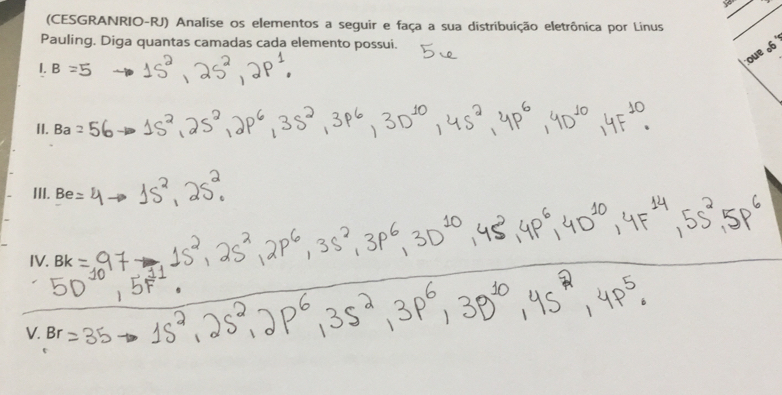 (CESGRANRIO-RJ) Analise os elementos a seguir e faça a sua distribuição eletrônica por Linus
Pauling. Diga quantas camadas cada elemento possui.
I. B = 5 → 1S², 2S², 2P¹.
II. Ba = 56 → 1S², 2S², 2P⁶, 3S², 3P⁶, 3D¹⁰, 4S², 4P⁶, 4D¹⁰, 4F¹⁰.
III. Be = 4 → 1S², 2S².
IV. Bk = 97 → 1S², 2S², 2P⁶, 3S², 3P⁶, 3D¹⁰, 4S², 4P⁶, 4D¹⁰, 4F¹⁴, 5S², 5P⁶
5D¹⁰, 5F¹¹.
V. Br = 35 → 1S², 2S², 2P⁶, 3S², 3P⁶, 3D¹⁰, 4S², 4P⁵.